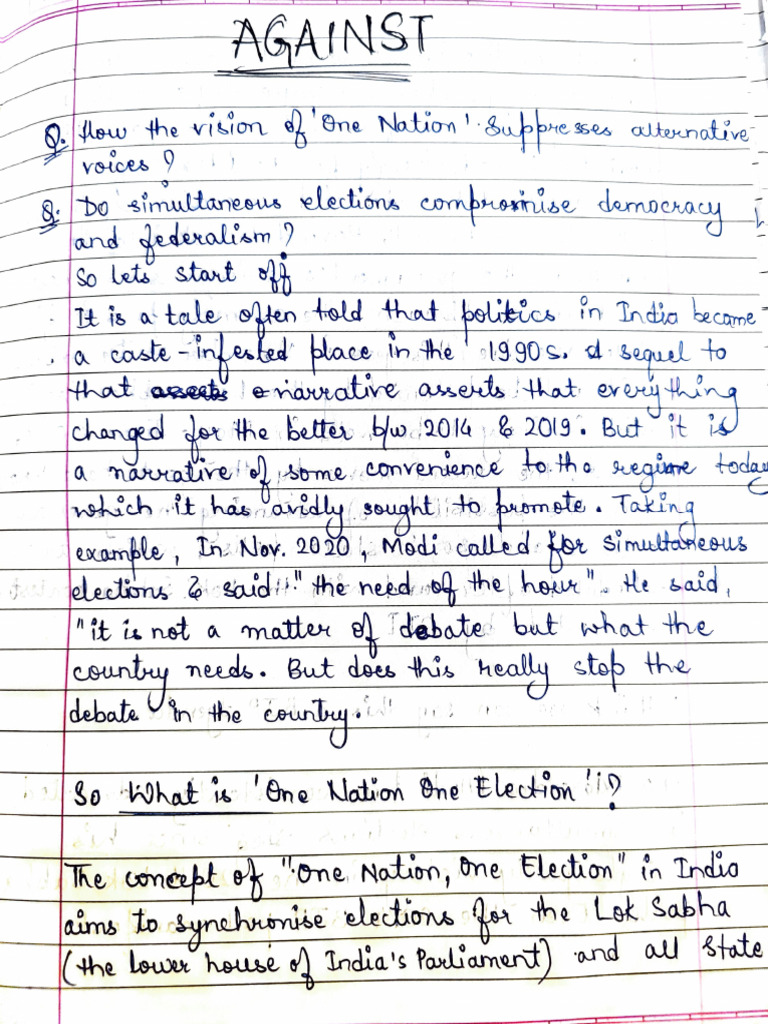 AGAINST
Q. How the vision of 'One Nation' suppresses alternative
voices?
Q. Do simultaneous elections compromise democracy
and federalism?
So lets start off
It is a tale often told that politics in India became
a caste-infested place in the 1990s. A sequel to
that narrative asserts that everything
changed for the better b/w 2014 & 2019. But it is
a narrative of some convenience to the regime today
which it has avidly sought to promote. Taking
example, In Nov. 2020, Modi called for simultaneous
elections & said "the need of the hour". He said,
"it is not a matter of debate but what the
country needs. But does this really stop the
debate in the country.
So What is 'One Nation One Election'?
The concept of "One Nation, One Election" in India
aims to synchronise elections for the Lok Sabha
(the lower house of India's Parliament) and all State